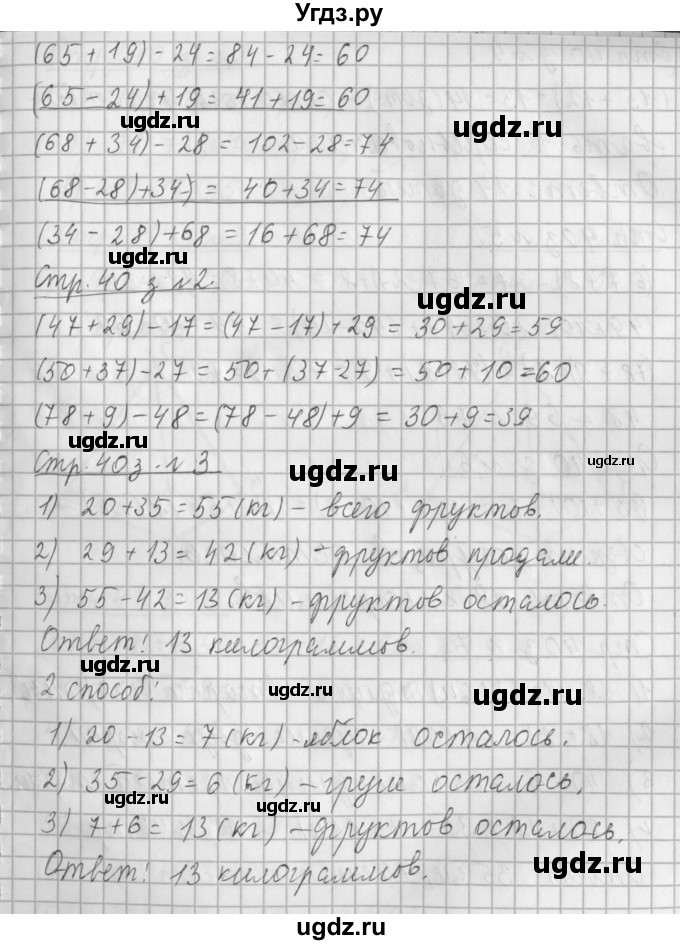 Угдз.ру
(65 + 19) - 24 = 84 - 24 = 60
(65 - 24) + 19 = 41 + 19 = 60
ugdz.ru
ugdz.ru
(68 + 34) - 28 = 102 - 28 = 74
(68 - 28) + 34) = 40 + 34 = 74
(34 - 28) + 68 = 16 + 68 = 74
ugdz.ru
Стр. 40 з №2.
ugdz.ru
(47 + 29) - 17 = (47 - 17) + 29 = 30 + 29 = 59
(50 + 37) - 27 = 50 + (37 - 27) = 50 + 10 = 60
(78 + 9) - 48 = (78 - 48) + 9 = 30 + 9 = 39
ugdz.ru
Стр. 40 з. №3
ugdz.ru
ugdz.ru
1) 20 + 35 = 55 (кг) - всего фруктов.
2) 29 + 13 = 42 (кг) - фруктов продали.
3) 55 - 42 = 13 (кг) - фруктов осталось.
Ответ! 13 килограммов.
ugdz.ru
2 способ!
ugdz.ru
ugdz.ru
1) 20 - 13 = 7 (кг) - яблок осталось.
2) 35 - 29 = 6 (кг) - груш осталось,
ugdz.ru
ugdz.ru
3) 7 + 6 = 13 (кг) - фруктов осталось,
Ответ! 13 килограммов.
ugdz.ru
ugdz.ru